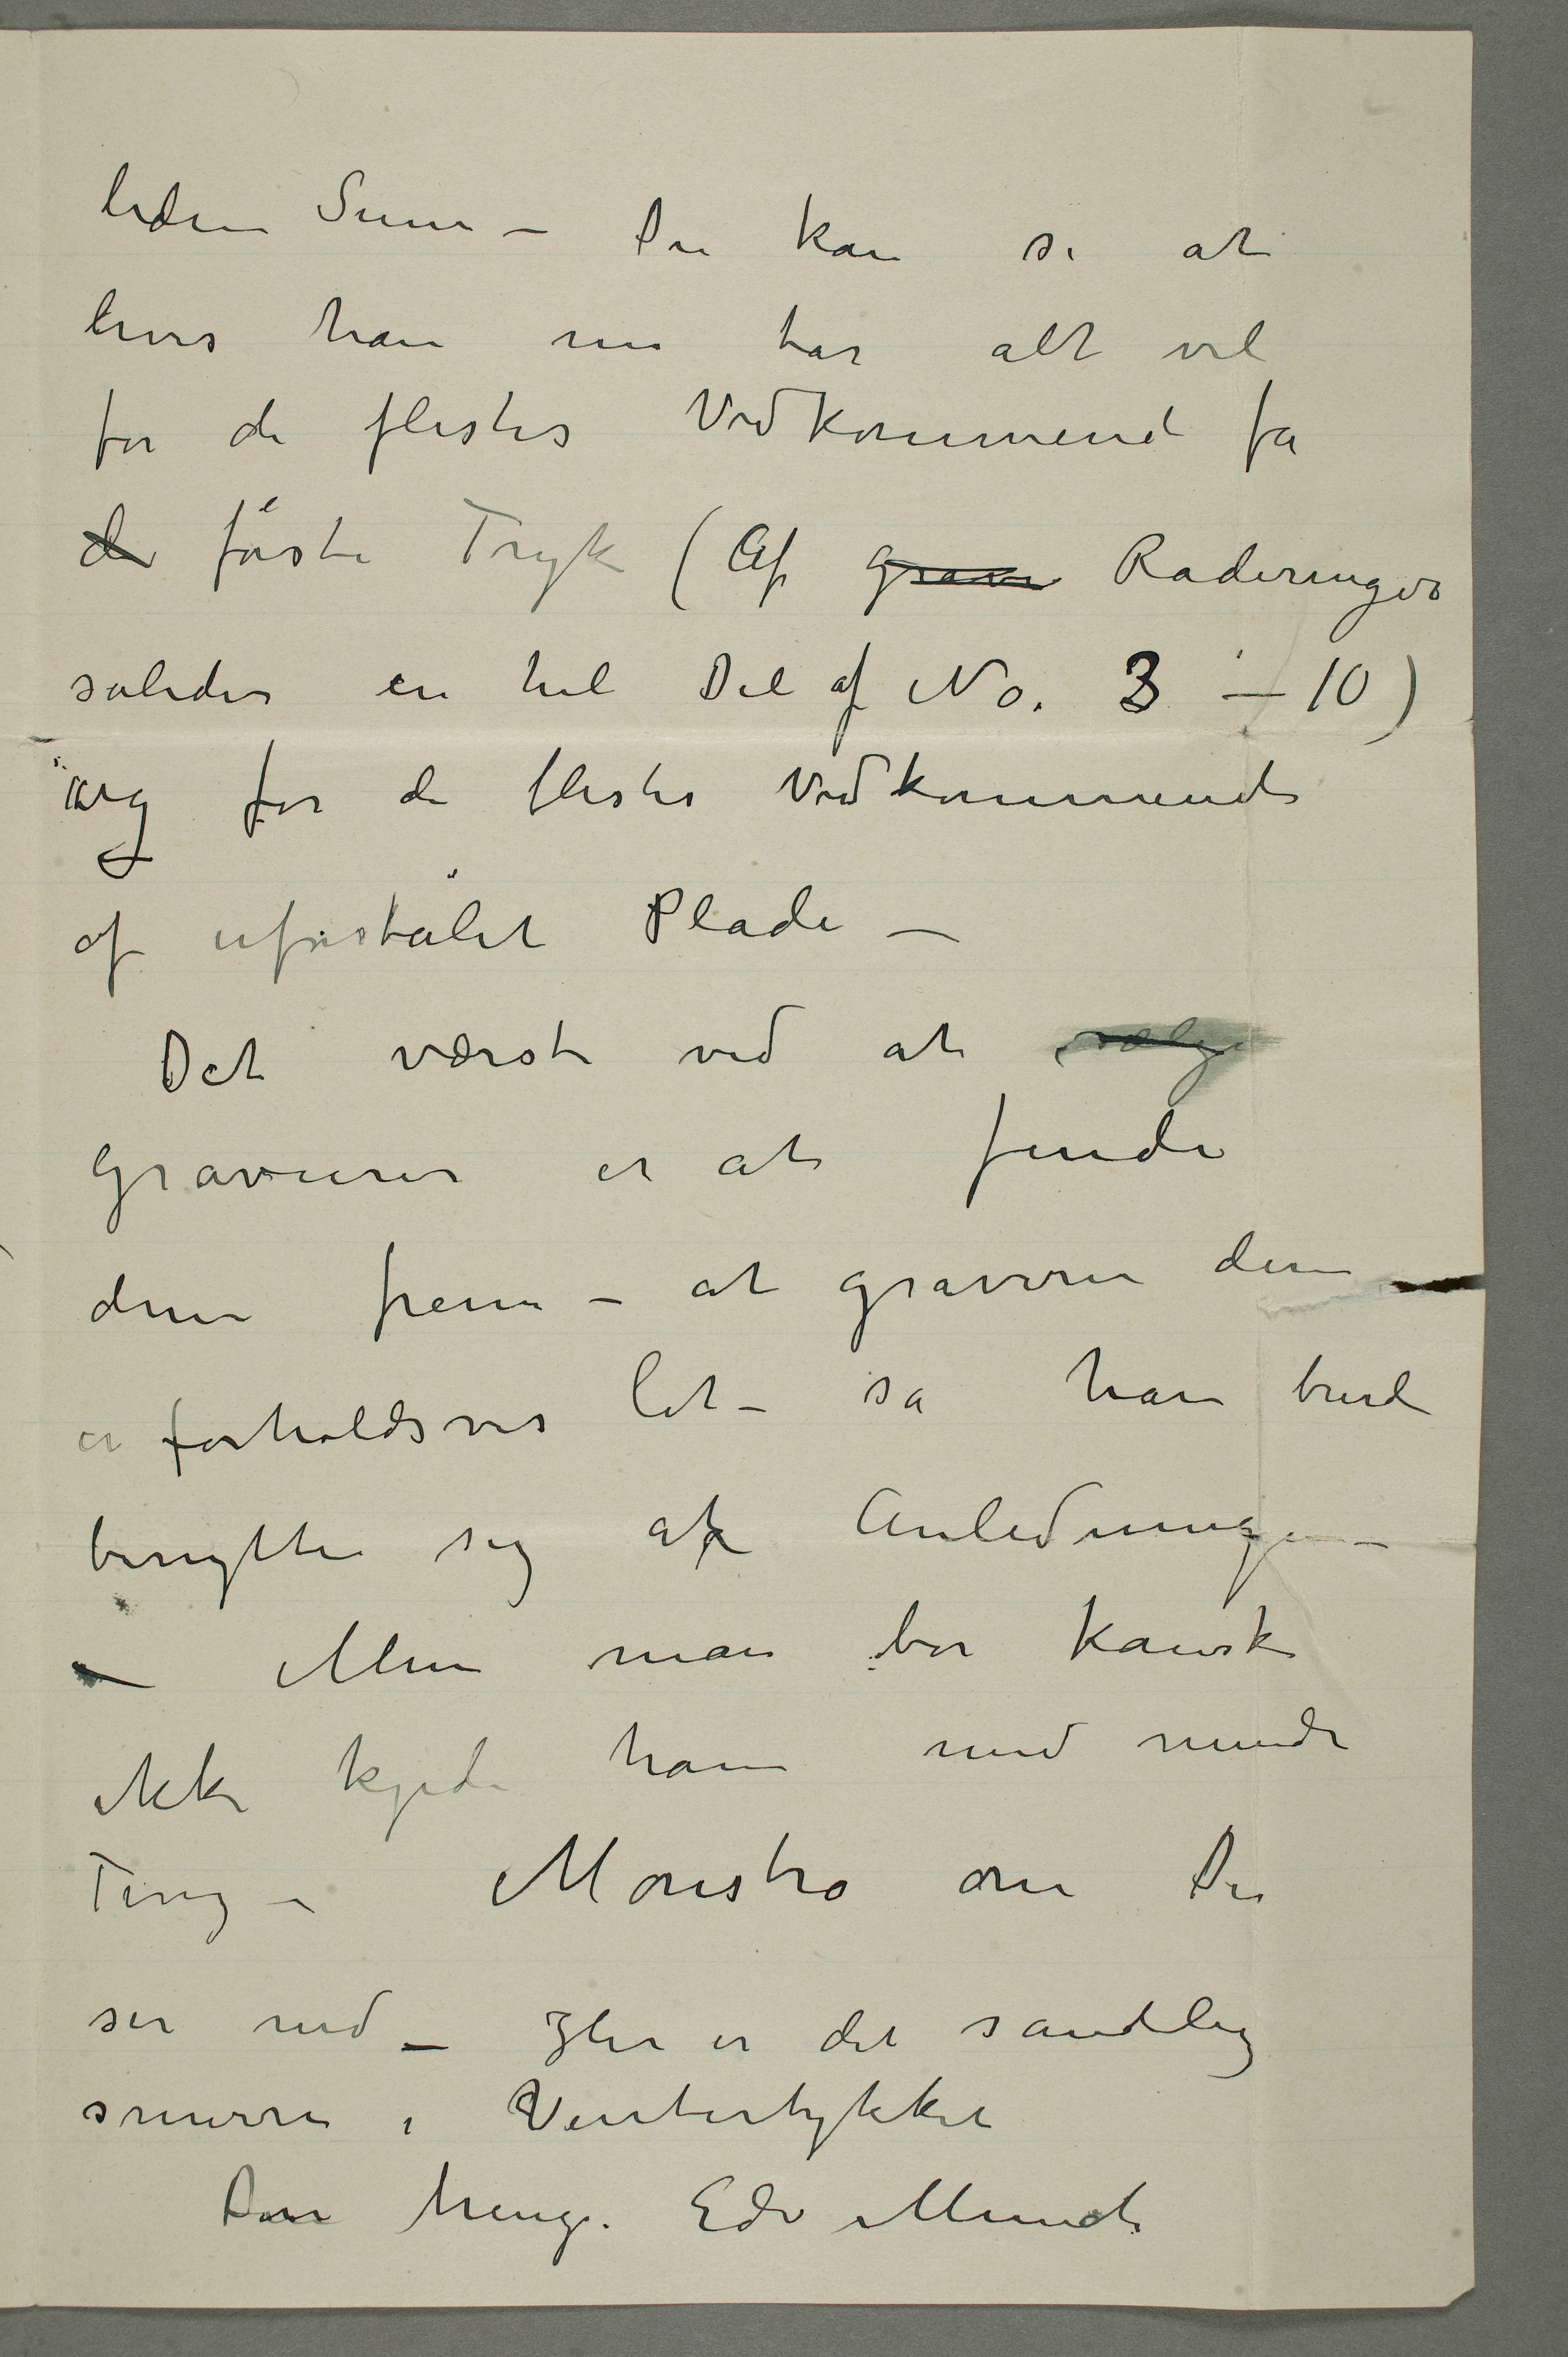 liden Sum – Du kan si at
hvis han nu tar alt vil
for de flestes Vedkommend få
de første Tryk (Af grave Raderinger
således en hel Del af No. 3 – 10)
og for de flestes Vedkommende
af uforstålet Plade –
Det værste ved at sælge
gravurer er at finde
dem frem – at gravere dem
er forholdsvis let – så han burde
benytte sig af Anledningen –
– Men man bør kanske
ikke kjede ham med mindre
Ting – Monstro om Du
ser ned – Her er det sandelig
smurn i Vintertykket
Din heng. Edv Munch